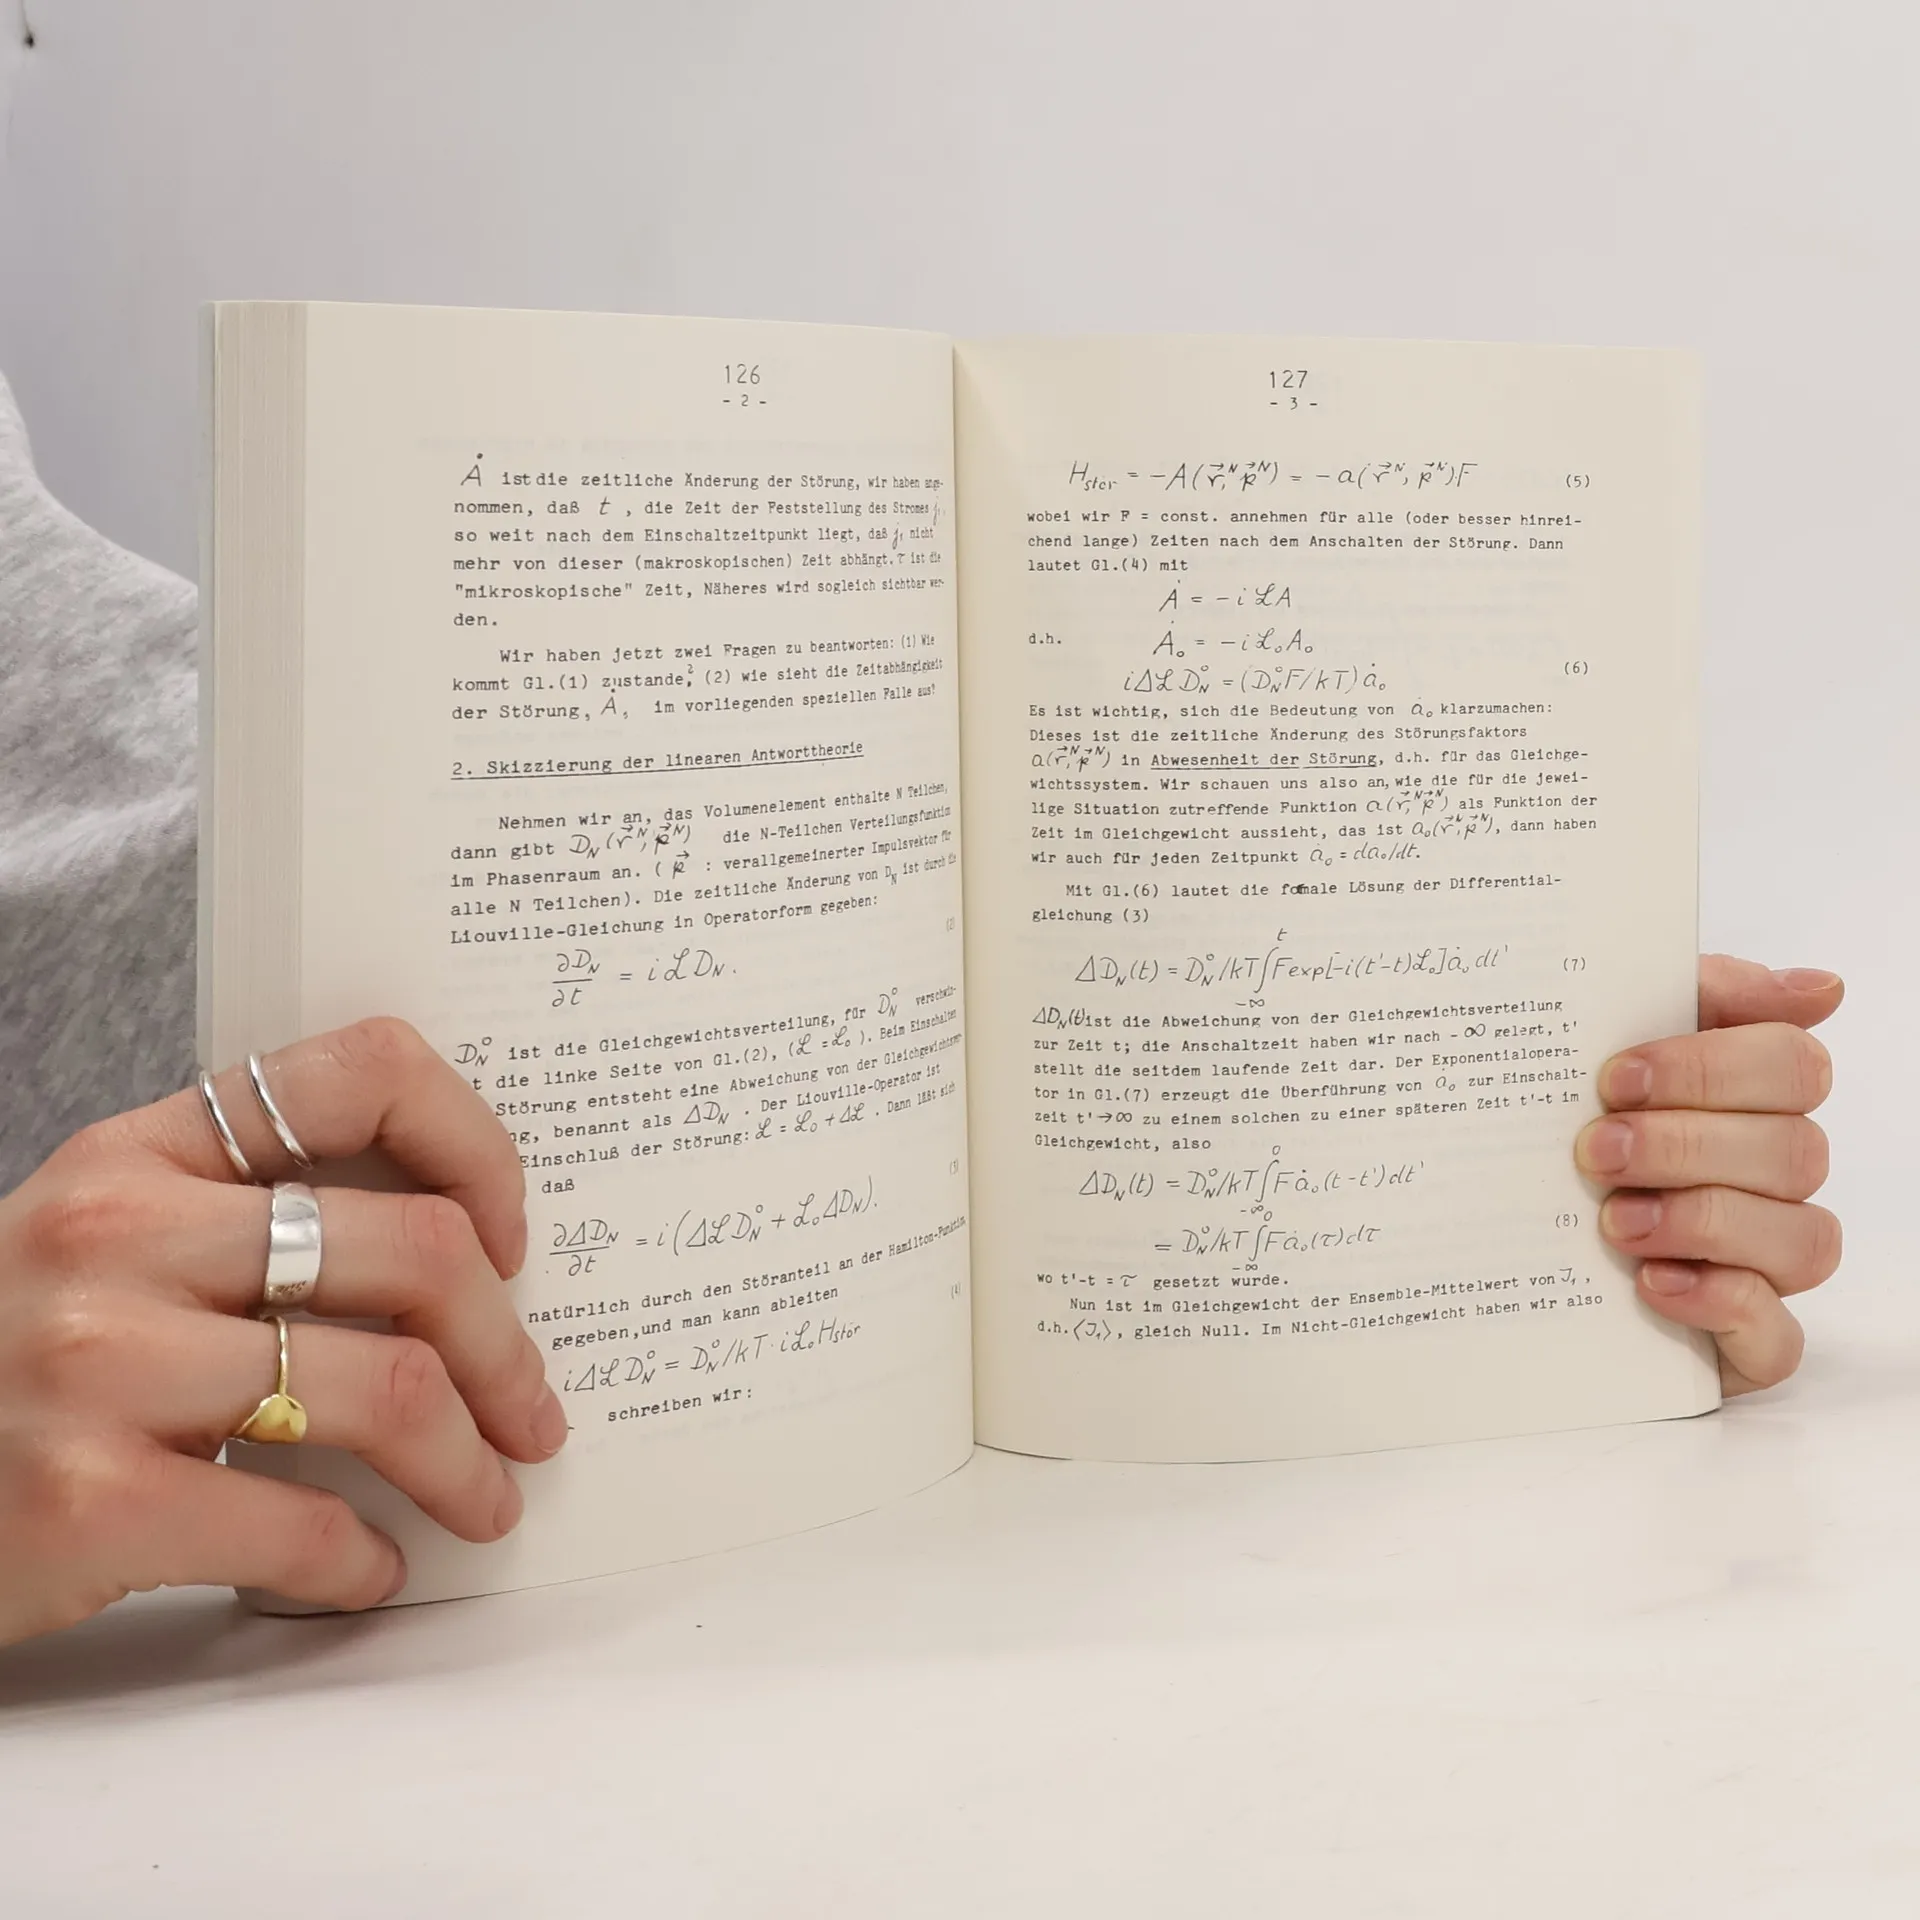 126
- 2 -
Ȧ ist die zeitliche Änderung der Störung, wir haben ange-
nommen, daß t , die Zeit der Feststellung des Stromes j₁,
so weit nach dem Einschaltzeitpunkt liegt, daß j₁ nicht
mehr von dieser (makroskopischen) Zeit abhängt. τ ist die
"mikroskopische" Zeit, Näheres wird sogleich sichtbar wer-
den.
Wir haben jetzt zwei Fragen zu beantworten: (1) Wie
kommt Gl.(1) zustande? (2) wie sieht die Zeitabhängigkeit
der Störung, Ȧ, im vorliegenden speziellen Falle aus?
2. Skizzierung der linearen Antworttheorie
Nehmen wir an, das Volumenelement enthalte N Teilchen,
dann gibt D_N(r⃗^N, p⃗^N) die N-Teilchen Verteilungsfunktion
im Phasenraum an. ( p⃗ : verallgemeinerter Impulsvektor für
alle N Teilchen). Die zeitliche Änderung von D_N ist durch die
Liouville-Gleichung in Operatorform gegeben:
∂D_N/∂t = iℒD_N. (2)
D_N° ist die Gleichgewichtsverteilung, für D_N° verschwin-
t die linke Seite von Gl.(2), (ℒ = ℒ₀). Beim Einschalten
Störung entsteht eine Abweichung von der Gleichgewichtsver-
ng, benannt als ΔD_N . Der Liouville-Operator ist
Einschluß der Störung: ℒ = ℒ₀ + Δℒ . Dann läßt sich
daß
∂ΔD_N/∂t = i(ΔℒD_N° + ℒ₀ΔD_N). (3)
natürlich durch den Störanteil an der Hamilton-Funktion
gegeben,und man kann ableiten
iΔℒD_N° = D_N°/kT · iℒ₀H_stör (4)
schreiben wir:
127
- 3 -
H_stör = -A(r⃗^N, p⃗^N) = -a(r⃗^N, p⃗^N)F (5)
wobei wir F = const. annehmen für alle (oder besser hinrei-
chend lange) Zeiten nach dem Anschalten der Störung. Dann
lautet Gl.(4) mit
Ȧ = -iℒA
d.h. Ȧ₀ = -iℒ₀A₀
iΔℒD_N° = (D_N°F/kT)ȧ₀ (6)
Es ist wichtig, sich die Bedeutung von ȧ₀ klarzumachen:
Dieses ist die zeitliche Änderung des Störungsfaktors
a(r⃗^N, p⃗^N) in Abwesenheit der Störung, d.h. für das Gleichge-
wichtssystem. Wir schauen uns also an, wie die für die jewei-
lige Situation zutreffende Funktion a(r⃗^N, p⃗^N) als Funktion der
Zeit im Gleichgewicht aussieht, das ist a₀(r⃗^N, p⃗^N), dann haben
wir auch für jeden Zeitpunkt ȧ₀ = da₀/dt.
Mit Gl.(6) lautet die formale Lösung der Differential-
gleichung (3)
ΔD_N(t) = D_N°/kT ∫_{-∞}^{t} F exp[-i(t'-t)ℒ₀]ȧ₀dt' (7)
ΔD_N(t) ist die Abweichung von der Gleichgewichtsverteilung
zur Zeit t; die Anschaltzeit haben wir nach -∞ gelegt, t'
stellt die seitdem laufende Zeit dar. Der Exponentialopera-
tor in Gl.(7) erzeugt die Überführung von ȧ₀ zur Einschalt-
zeit t'→∞ zu einem solchen zu einer späteren Zeit t'-t im
Gleichgewicht, also
ΔD_N(t) = D_N°/kT ∫_{-∞}^{0} Fȧ₀(t-t')dt'
= D_N°/kT ∫_{-∞}^{0} Fȧ₀(τ)dτ (8)
wo t'-t = τ gesetzt wurde.
Nun ist im Gleichgewicht der Ensemble-Mittelwert von J₁ ,
d.h.⟨J₁⟩, gleich Null. Im Nicht-Gleichgewicht haben wir also